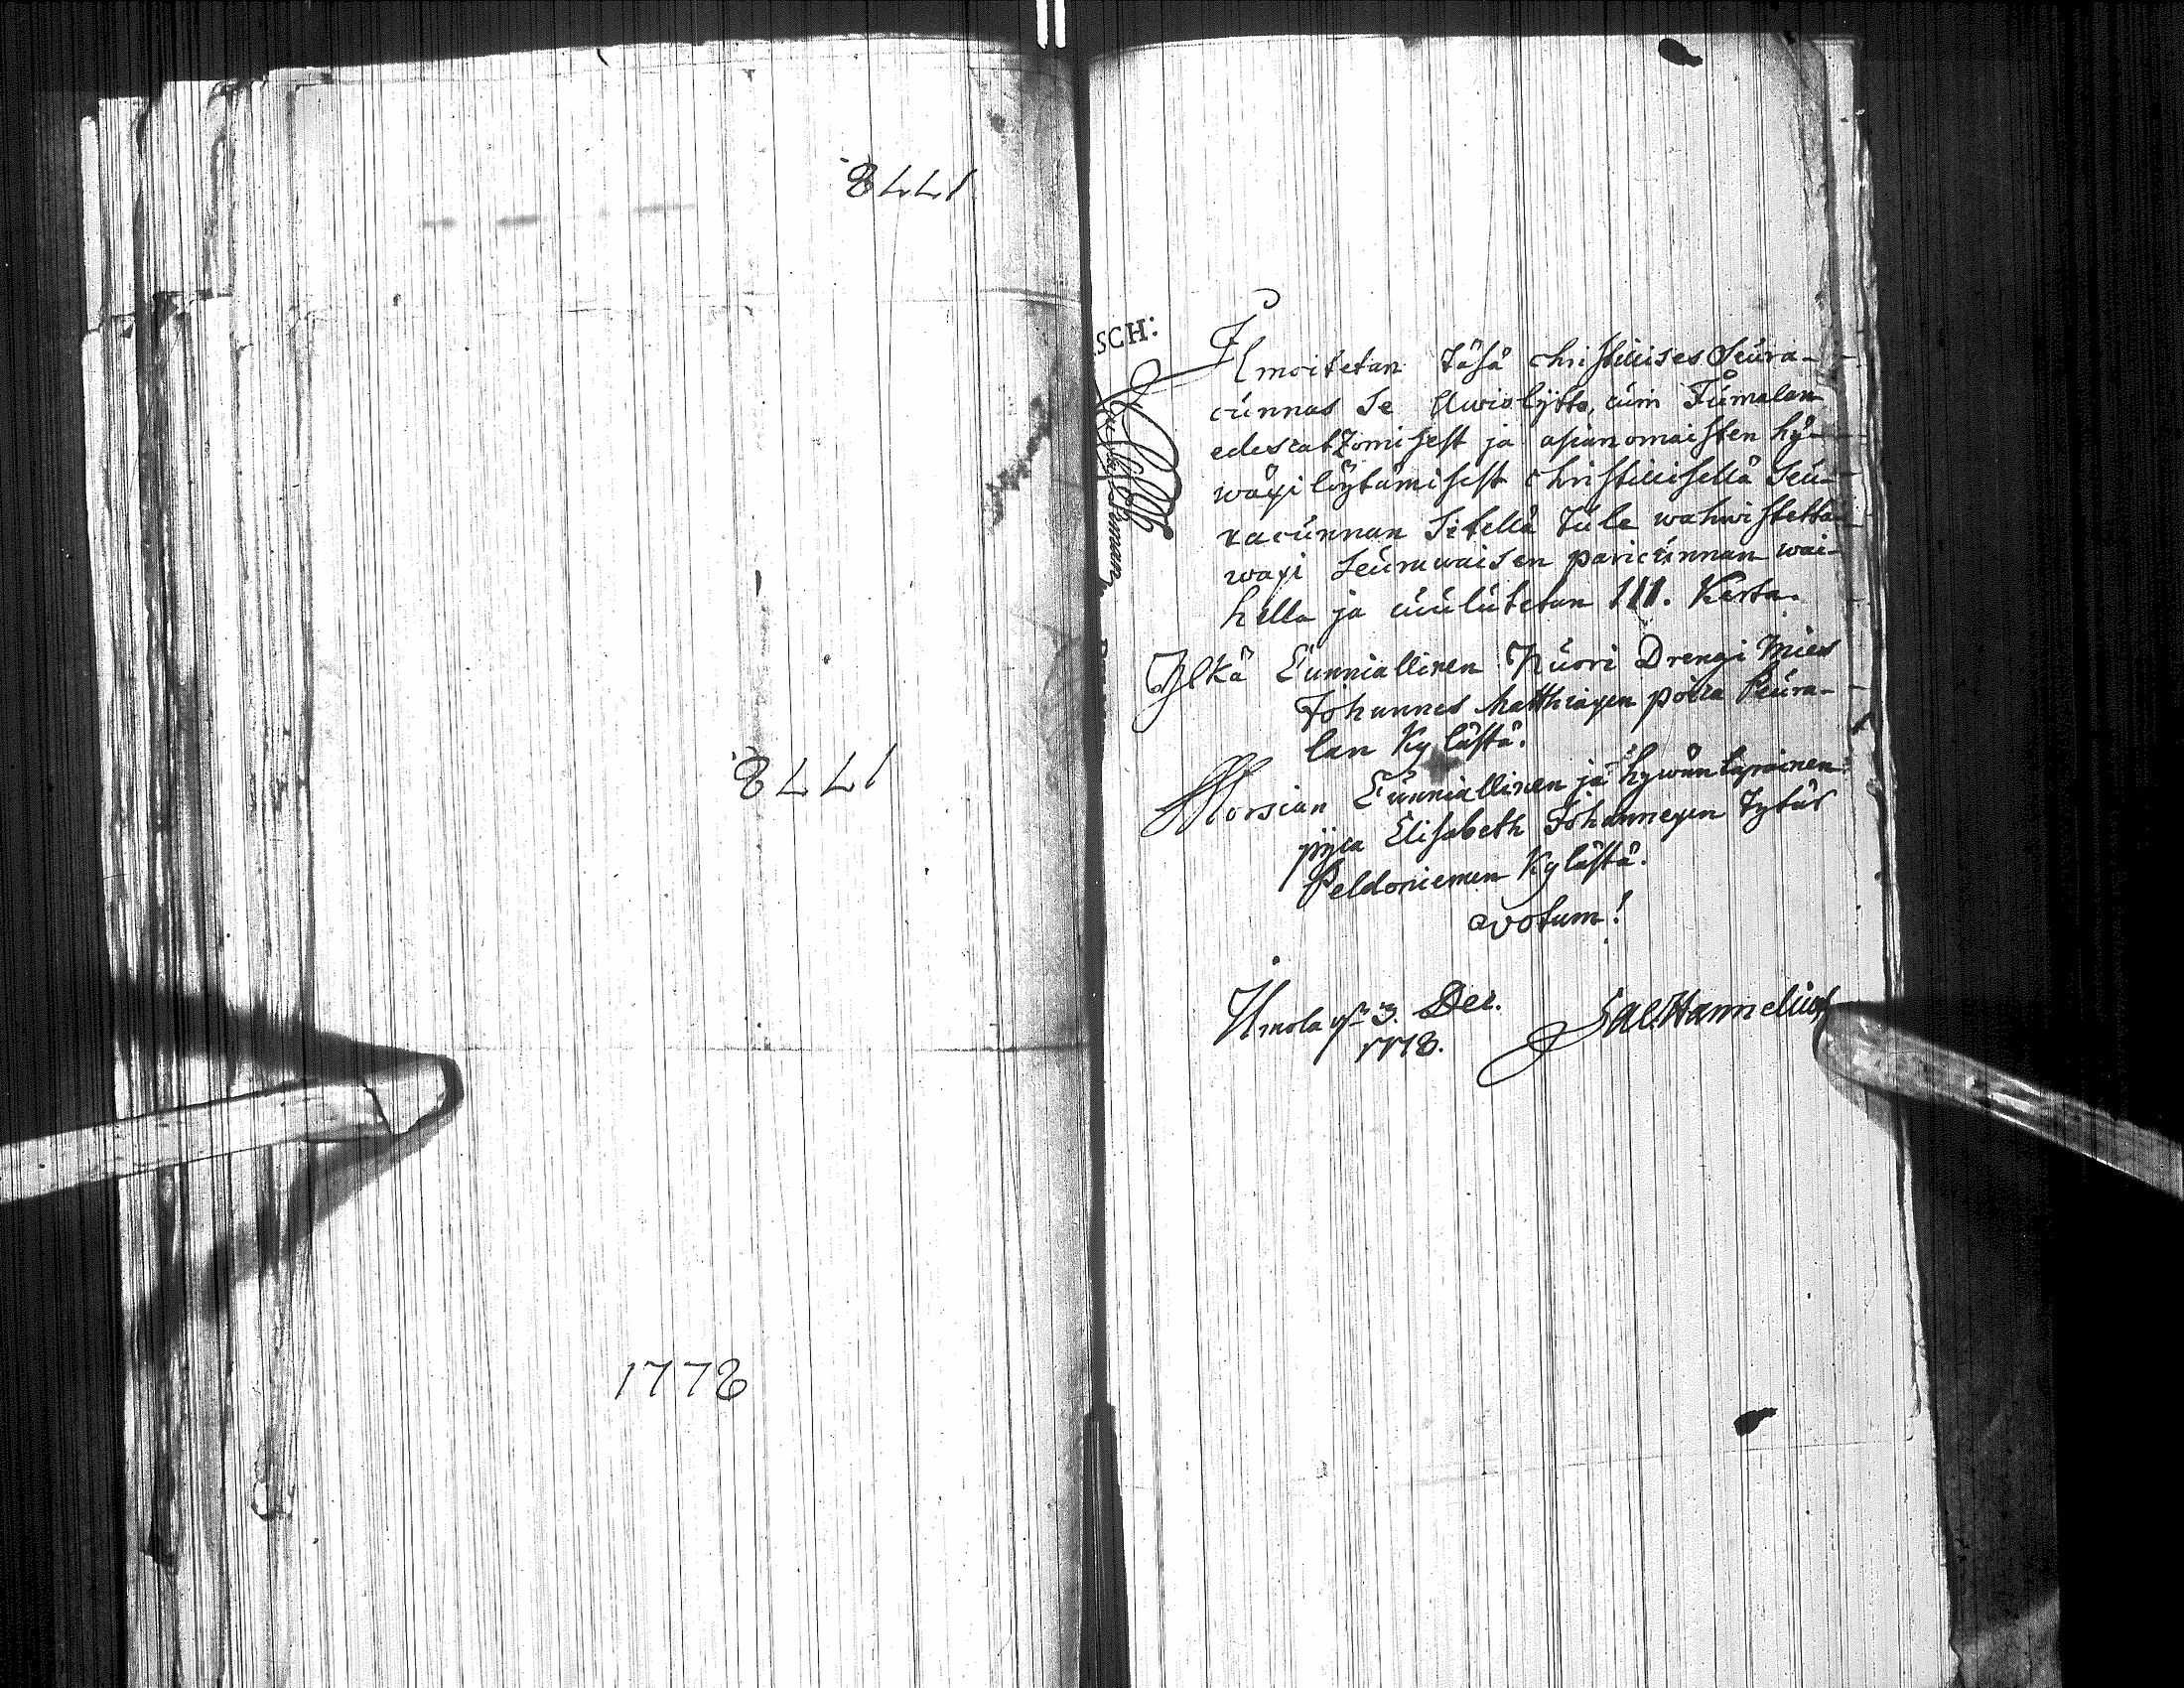 1778.
1778.
1778
SCH:
Ilmoitetan täsä christilises Seura-
cunnas Se Awioskäsky, cuin Jumalan
edescatzomisest ja asianomaisten hy-
wäxi löytämisest christillisellä Seu-
racunnan Sitellä tule wahwistetta-
waxi Seurawaisen paricunnan wai-
hella ja cuulutetan III. Kerta.
Ylkä Cunniallinen Nuori Drengi Mies
Johannes Matthiaxen poica Peura-
lan Kylästä.
Morsian Cunniallinen ja hywäntapainen
pijca Elisabeth Johannexen Tytär
Peldoniemen Kylästä.
votum!
Urnola 3. Dec.
1778.
Sal. Hannelius